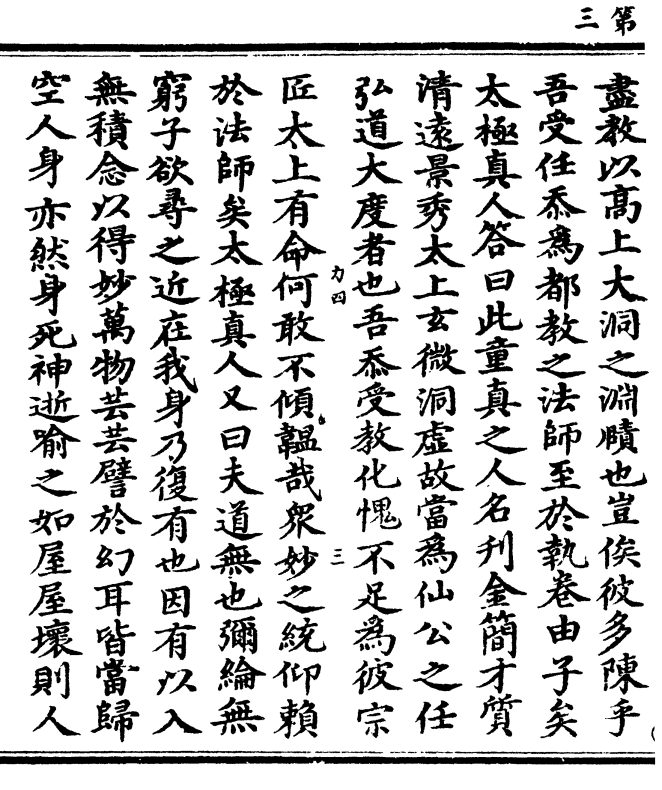 第三
盡教以高上大洞之淵賾也豈俟彼多陳乎
吾受任忝為都教之法師至於執卷由子矣
太極真人答曰此童真之人名刋金簡才質
清遠景秀太上玄微洞虛故當為仙公之任
弘道大度者也吾忝受教化愧不足為彼宗
力四 三
匠太上有命何敢不傾韞哉衆妙之統仰賴
於法師矣太極真人又曰夫道無也彌綸無
窮子欲尋之近在我身乃復有也因有以入
無積念以得妙萬物芸芸譬於幻耳皆當歸
空人身亦然身死神逝喻之如屋屋壞則人